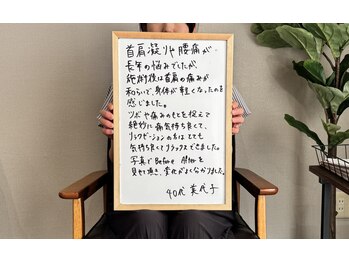 首肩凝りや腰痛が、
長年の悩みでしたが
施術後は首肩の痛みが
和らいで、身体が軽くなったのを
感じました。
ツボや痛みのもとを捉えて
絶妙に痛気持ち良くて、
リラクゼーションの方はとても
気持ち良くてリラックスできました。
写真でBefore Afterを
見せて頂き、変化がよく分かりました。
40代 美代子